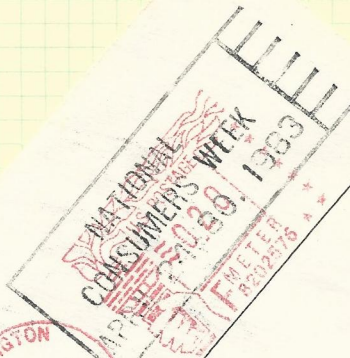 NATIONAL
CONSUMERS WEEK
APRIL 24-30, 1983
POSTAGE
METER
8202576
GTON